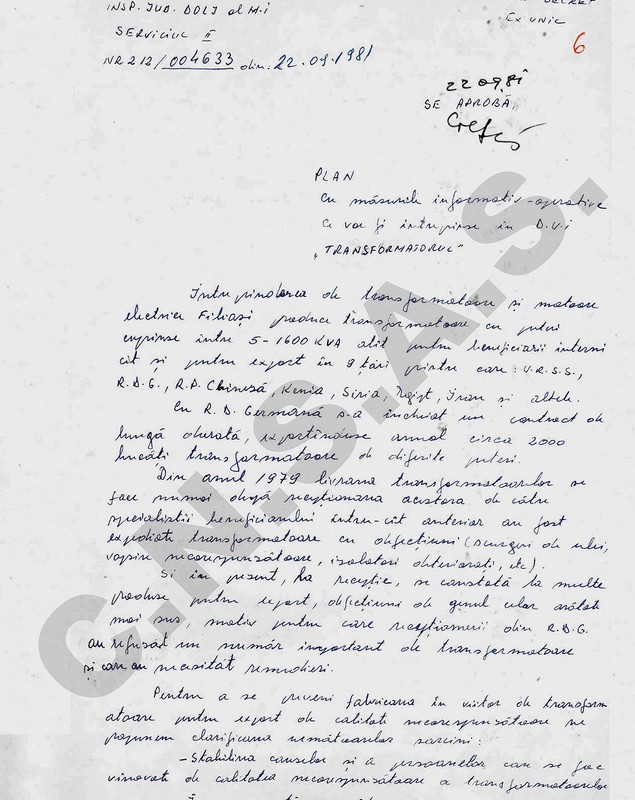 INSP. JUD. DOLJ al M.I
SECRET
SERVICIUL II
EX UNIC
NR 212/004633 din 22.09.1981
6
22 09 81
SE APROBĂ,
PLAN
cu măsurile informativ-operative
ce vor fi întreprinse în D.U.I
„TRANSFORMATORUL"
Întreprinderea de transformatoare și motoare
electrice Filiași produce transformatoare cu puteri
cuprinse între 5-1600 KVA atît pentru beneficiarii interni
cît și pentru export în 9 țări printre care: U.R.S.S.,
R.D.G., R.P. Chineză, Kenia, Siria, Egipt, Iran și altele.
Cu R.D. Germană s-a încheiat un contract de
lungă durată, exportîndu-se anual circa 2000
bucăți transformatoare de diferite puteri.
Din anul 1979 livrarea transformatoarelor se
face numai după recepționarea acestora de către
specialiștii beneficiarului întru-cît anterior au fost
expediate transformatoare cu obiecțiuni (scurgeri de ulei,
vopsire necorespunzătoare, izolatori deteriorați, etc).
Și în prezent, la recepție, se constată la multe
produse pentru export, obiecțiuni de genul celor arătate
mai sus, motiv pentru care recepționerii din R.D.G.
au refuzat un număr important de transformatoare
și care au necesitat remedieri.
Pentru a se preveni fabricarea în viitor de transform
atoare pentru export de calitate necorespunzătoare ne
propunem clarificarea următoarelor sarcini:
- Stabilirea cauzelor și a persoanelor care se fac
vinovate de calitatea necorespunzătoare a transformatoarelor
C.N.S.A.S.